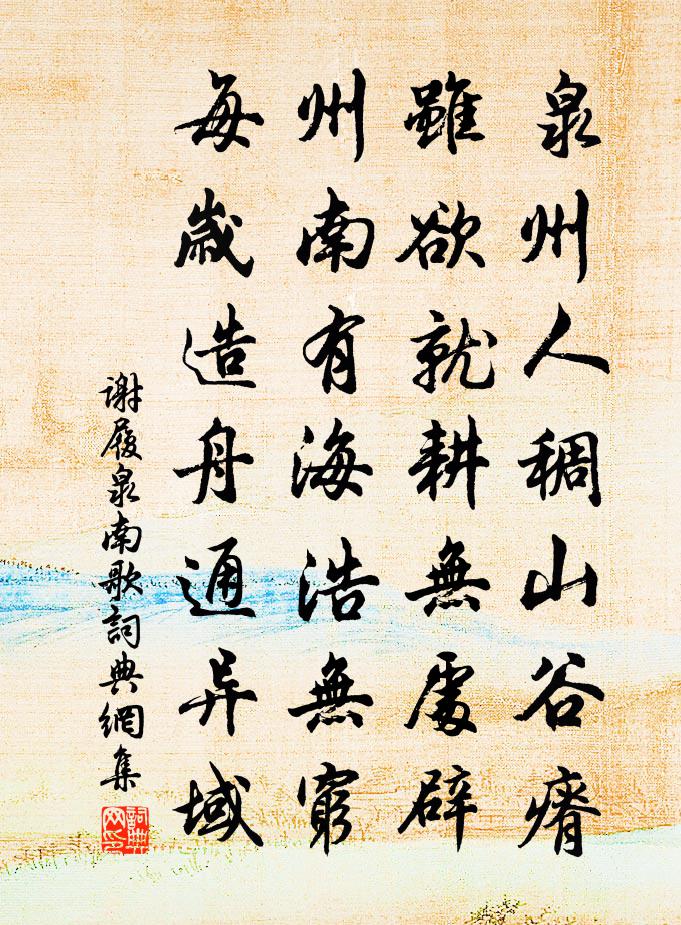 泉州人稠山谷瘠
雖欲就耕無處辟
州南有海浩無窮
每歲造舟通异域
謝履泉南歌詞典網集
詞典網印